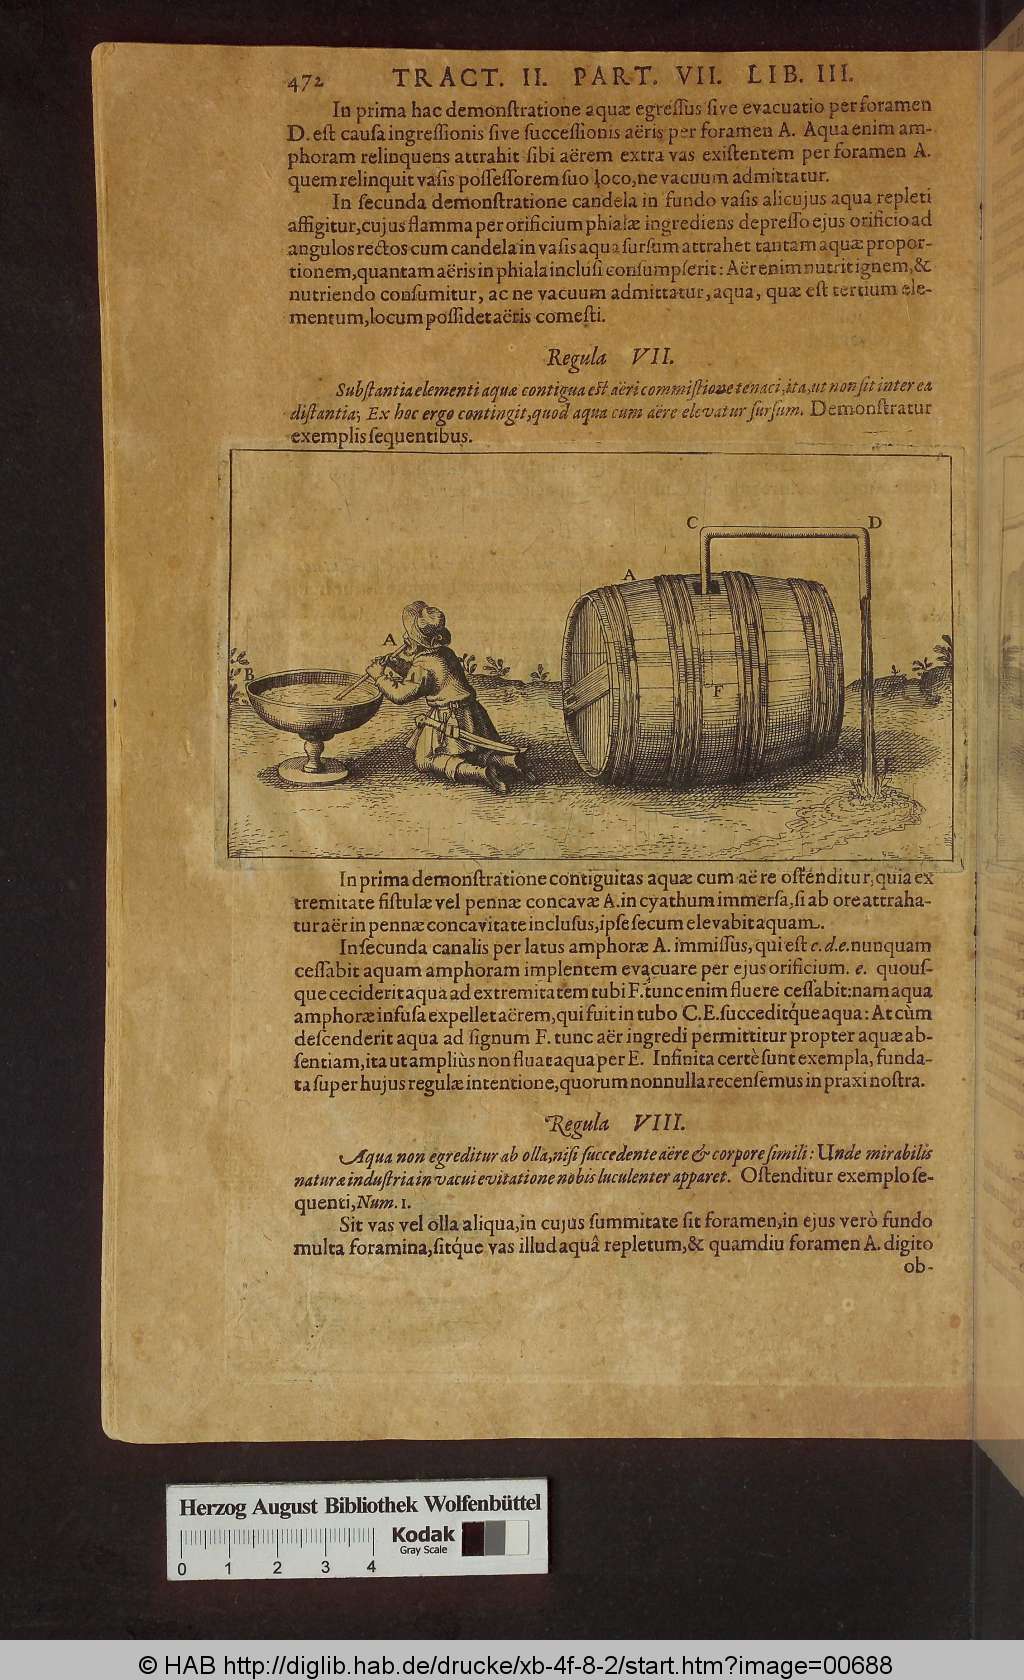 472 TRACT. II. PART. VII. LIB. III.
In prima hac demonſtratione aquæ egreſſus ſive evacuatio per foramen
D. eſt cauſa ingreſſionis ſive ſucceſſionis aëris per foramen A. Aqua enim am-
phoram relinquens attrahit ſibi aërem extra vas exiſtentem per foramen A.
quem relinquit vaſis poſſeſſorem ſuo loco, ne vacuum admittatur.
In ſecunda demonſtratione candela in fundo vaſis alicujus aqua repleti
affigitur, cujus flamma per orificium phialæ ingrediens depreſſo ejus orificio ad
angulos rectos cum candela in vaſis aqua ſurſum attrahet tantam aquæ propor-
tionem, quantam aëris in phiala incluſi conſumpſerit: Aër enim nutrit ignem, &
nutriendo conſumitur, ac ne vacuum admittatur, aqua, quæ eſt tertium ele-
mentum, locum poſſidet aëris comeſti.
Regula VII.
Subſtantia elementi aquæ contigua eſt aëri commiſtione tenaci, ita, ut non ſit inter ea
diſtantia; Ex hoc ergo contingit, quod aqua cum aëre elevatur ſurſum. Demonſtratur
exemplis ſequentibus.
C D
A
A
B
F
In prima demonſtratione contiguitas aquæ cum aëre oſténditur, quia ex
tremitate fiſtulæ vel pennæ concavæ A. in cyathum immerſa, ſi ab ore attraha-
tur aër in pennæ concavitate incluſus, ipſe ſecum elevabit aquam.
In ſecunda canalis per latus amphoræ A. immiſſus, qui eſt c. d. e. nunquam
ceſſabit aquam amphoram implentem evacuare per ejus orificium. e. quouſ-
que ceciderit aqua ad extremitatem tubi F. tunc enim fluere ceſſabit: nam aqua
amphoræ infuſa expellet aërem, qui fuit in tubo C. E. ſucceditq́ue aqua: At cùm
deſcenderit aqua ad ſignum F. tunc aër ingredi permittitur propter aquæ ab-
ſentiam, ita ut ampliùs non fluat aqua per E. Infinita certè ſunt exempla, funda-
ta ſuper hujus regulæ intentione, quorum nonnulla recenſemus in praxi noſtra.
Regula VIII.
Aqua non egreditur ab olla, niſi ſuccedente aëre & corpore ſimili: Unde mirabilis
naturæ induſtria in vacui evitatione nobis luculenter apparet. Oſtenditur exemplo ſe-
quenti, Num. 1.
Sit vas vel olla aliqua, in cujus ſummitate ſit foramen, in ejus verò fundo
multa foramina, ſitq́ue vas illud aquâ repletum, & quamdiu foramen A. digito
ob-
Herzog August Bibliothek Wolfenbüttel
Kodak
Gray Scale
0 1 2 3 4
© HAB http://diglib.hab.de/drucke/xb-4f-8-2/start.htm?image=00688